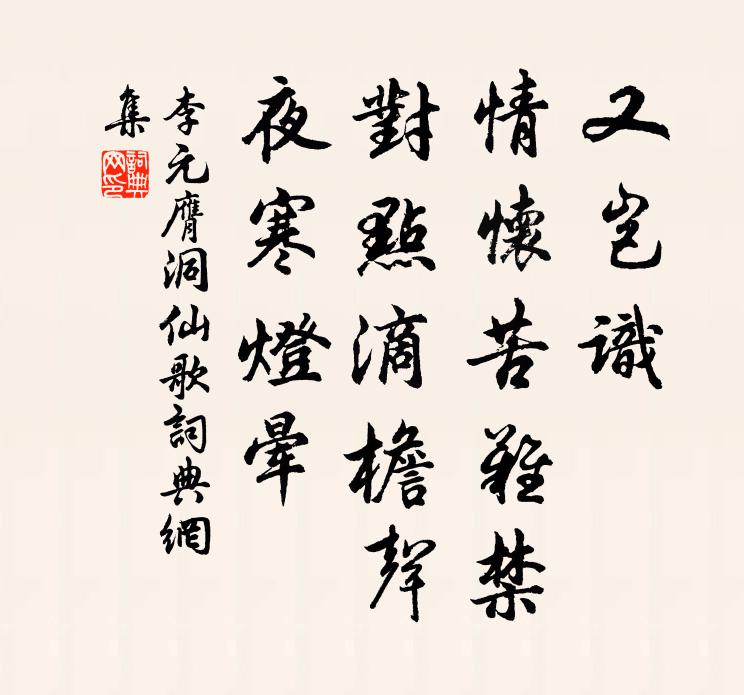 又岂識
情懷苦難禁
對點滴檐聲
夜寒燈暈
李元膺洞仙歌詞典網
集
詞典网印